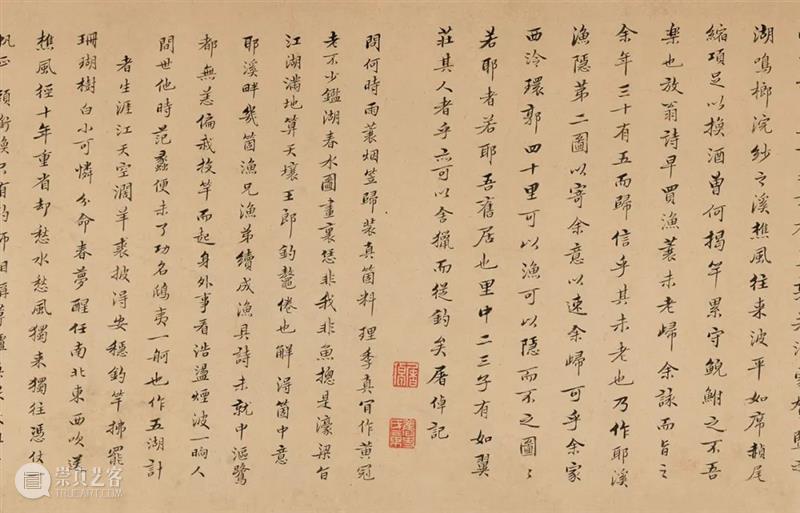 湖鳴榔浣紗之溪樵風往来波平如席赬尾
縮項足以換酒曾何揭竿累守鯢鮒之不吾
樂也放翁詩早買漁蓑未老歸余詠而旨之
余年三十有五而歸信乎其未老也乃作耶溪
漁隱第二圖以寄余意以速余歸可乎余家
西泠環郭四十里可以漁可以隱而不之圖〻
若耶者若耶吾舊居也里中二三子有如翼
莊其人者乎亦可以舍獵而從釣矣屠倬記
問何時雨蓑烟笠歸裝真箇料理季真肯作黃冠
老不少鑑湖春水圖畫裏恁非我非魚摠是濠梁旨
江湖滿地算天壤王郎釣鼇倦也解得箇中意
耶溪畔幾箇漁兄漁弟續成漁具詩未就中漚鷺
都無恙偏我投竿而起身外事看浩盪煙波一晌人
間世他時范蠡便未了功名鴟夷一舸也作五湖計
者生涯江天空濶羊裘披得安穩釣竿拂罷
珊瑚樹白小可憐分命春夢醒任南北東西吹送
樵風徑十年重省却愁水愁風獨来獨往憑仗
頭銜換只有釣師相稱蓴鱸
崇真艺客
WWW.TRUEART.COM